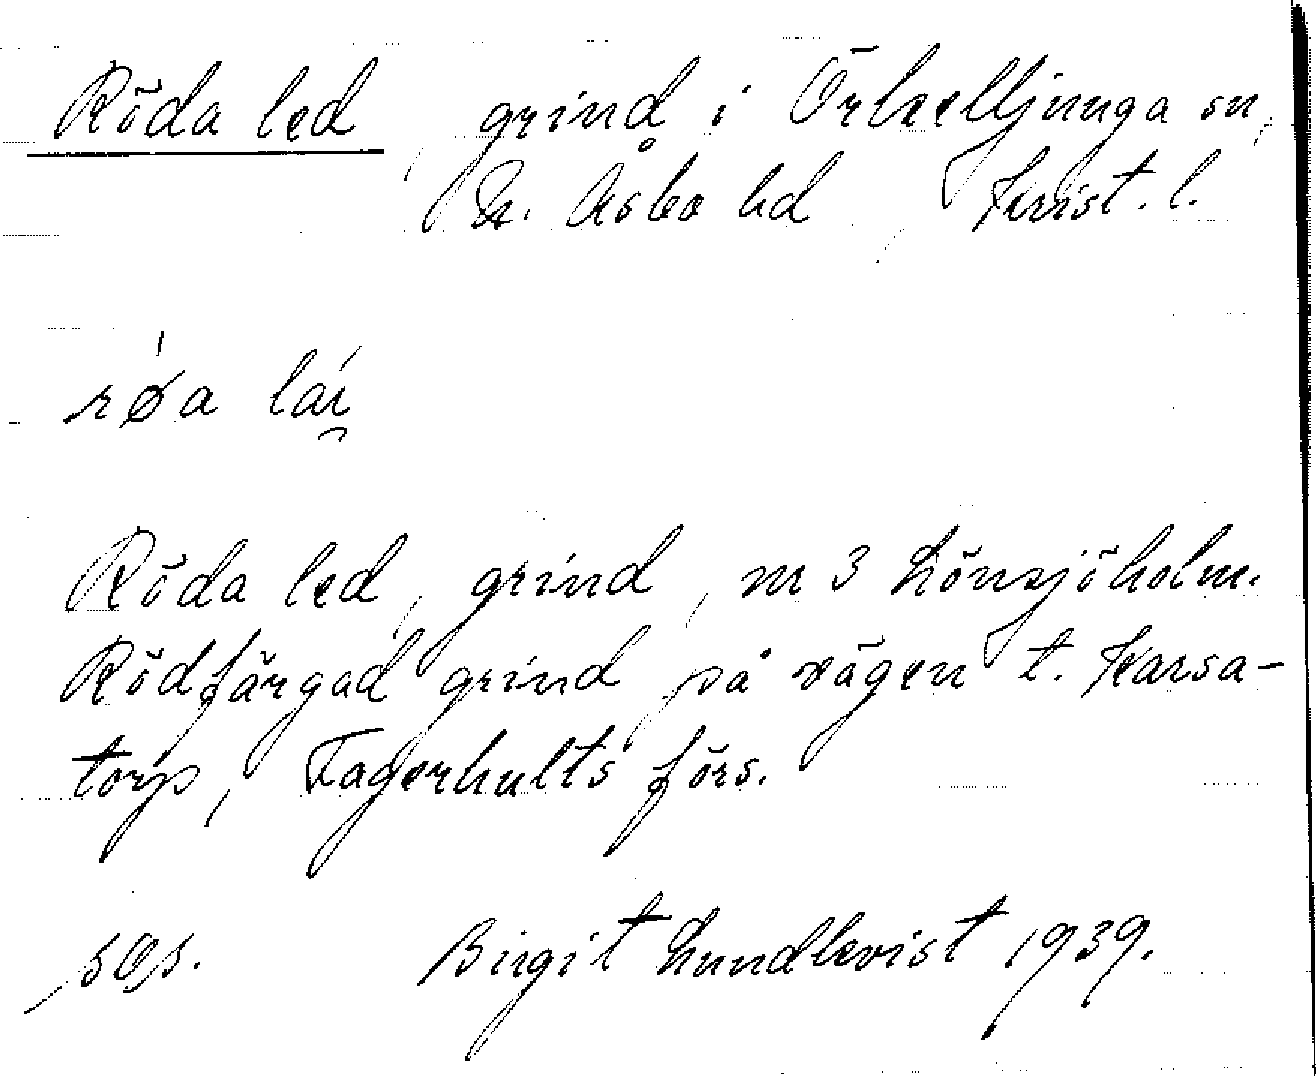 Röda led, grind i Örkelljunga sn,
N. Åsbo hd, Krist. l.
røa lai̯
Röda led, grind, nr 3 Lönsjöholm.
Rödfärgad grind på vägen t. Karsa-
torp, Fagerhults förs.
Birgit Lundkvist 1939.